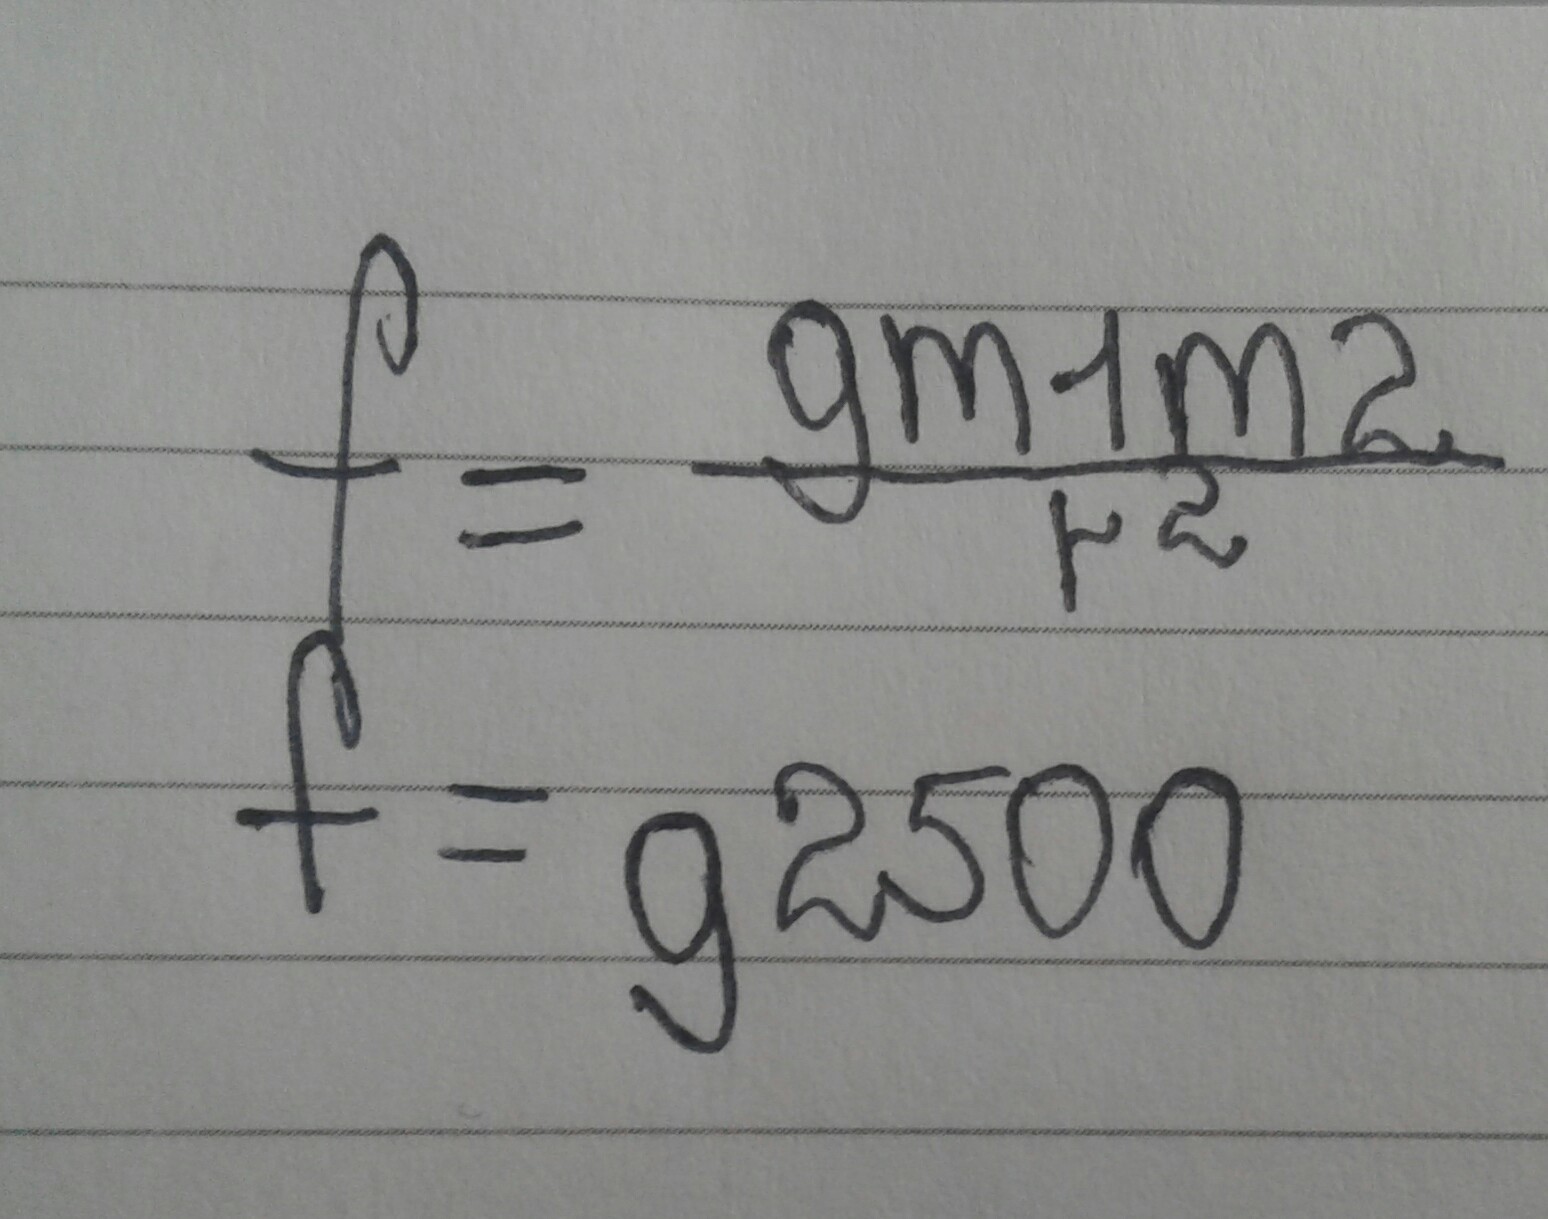 f = gm1m2
r2
f = g2500